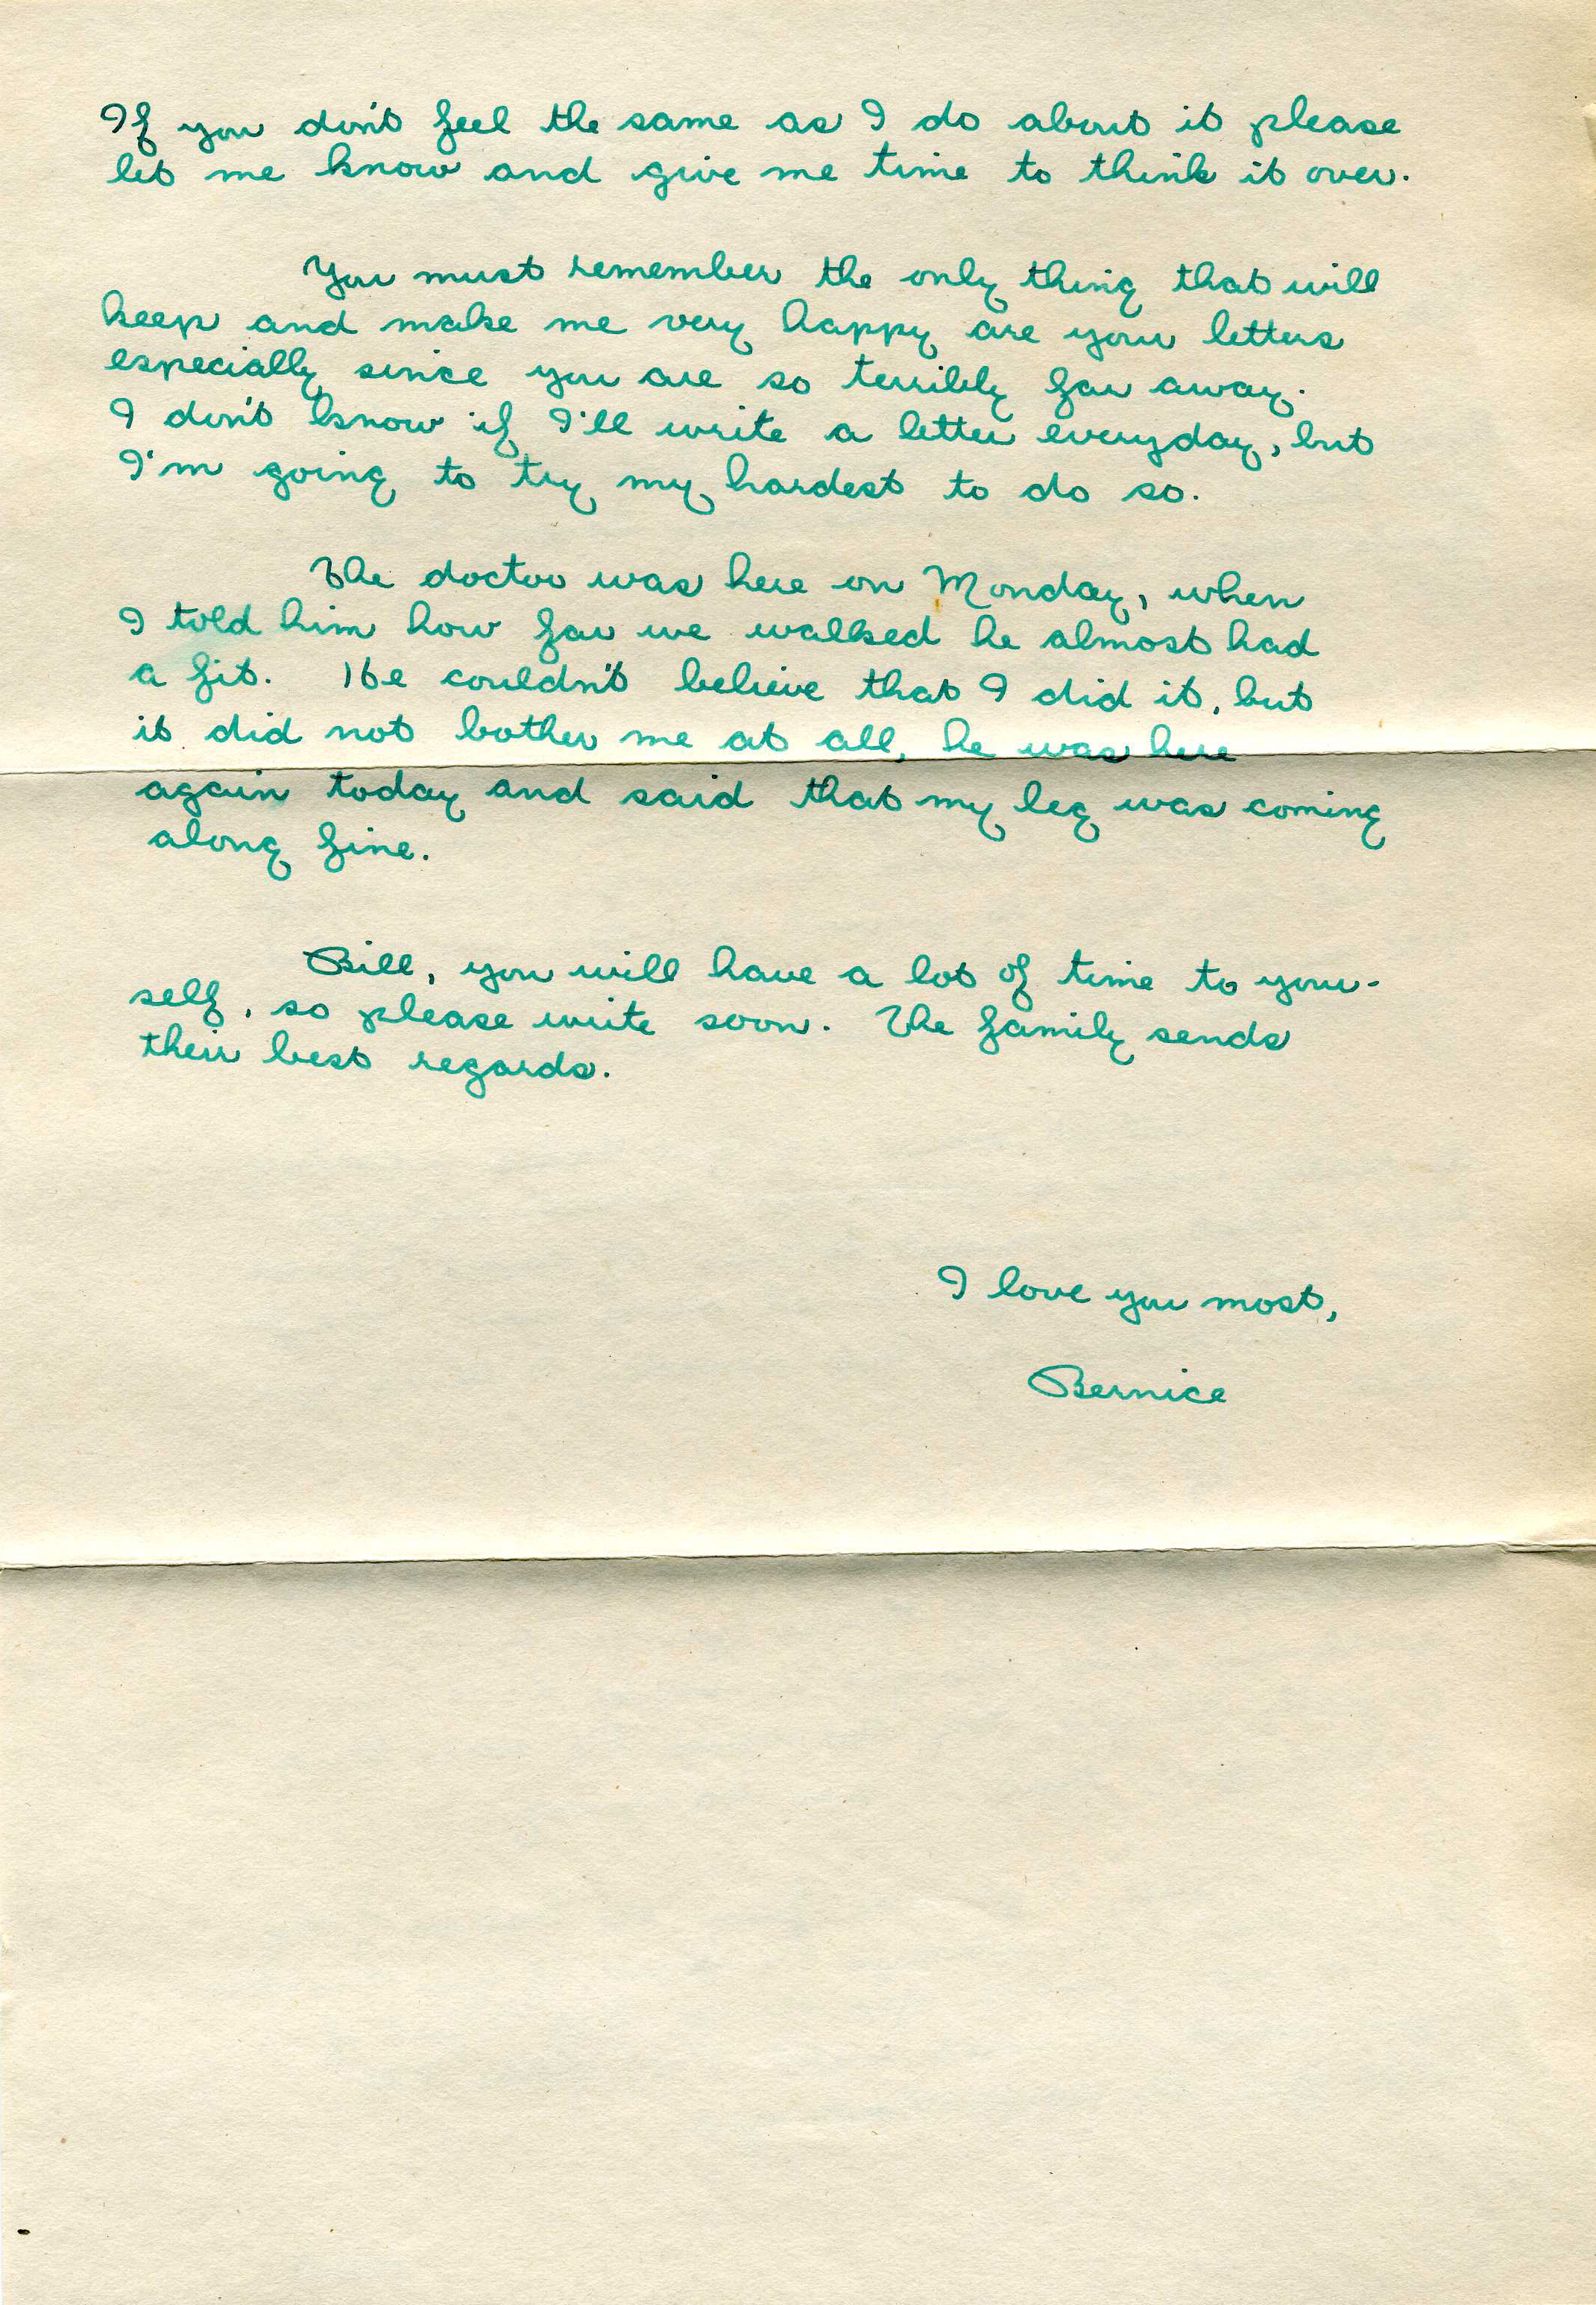 If you don't feel the same as I do about it please
let me know and give me time to think it over.
You must remember the only thing that will
keep and make me very happy are your letters
especially since you are so terribly far away.
I don't know if I'll write a letter everyday, but
I'm going to try my hardest to do so.
The doctor was here on Monday, when
I told him how far we walked he almost had
a fit. He couldn't believe that I did it, but
it did not bother me at all, he was here
again today and said that my leg was coming
along fine.
Bill, you will have a lot of time to your-
self, so please write soon. The family sends
their best regards.
I love you most,
Bernice